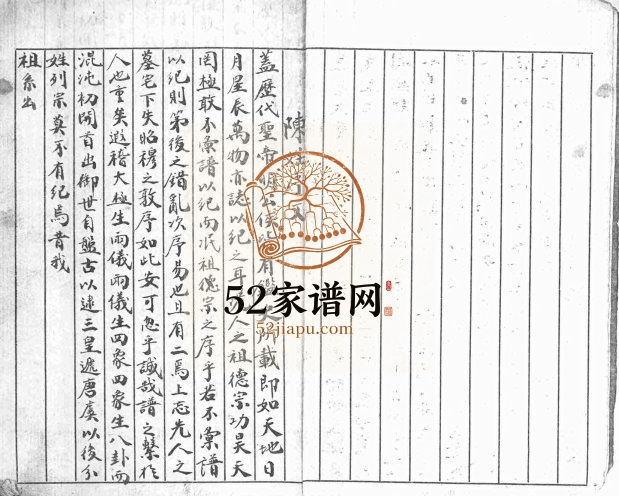 陳
蓋歷代聖帝明公侯 有鑑史所載即如天地日
月星辰萬物亦誌以紀之耳 人之祖德宗功昊天
罔極敢不彙譜以紀而泯祖德宗之序乎若不彙譜
以紀則第後之錯亂次序易也且有二焉上忘先人之
墓宅下失昭穆之敦序如此安可忽乎誠哉譜之繫於
人也重矣遐稽太極生兩儀兩儀生四象四象生八卦而
混沌初開首出御世自盤古以逮三皇遞唐虞以後分
姓列宗莫不有紀焉昔我
祖系出
52家谱网
52jiapu.com